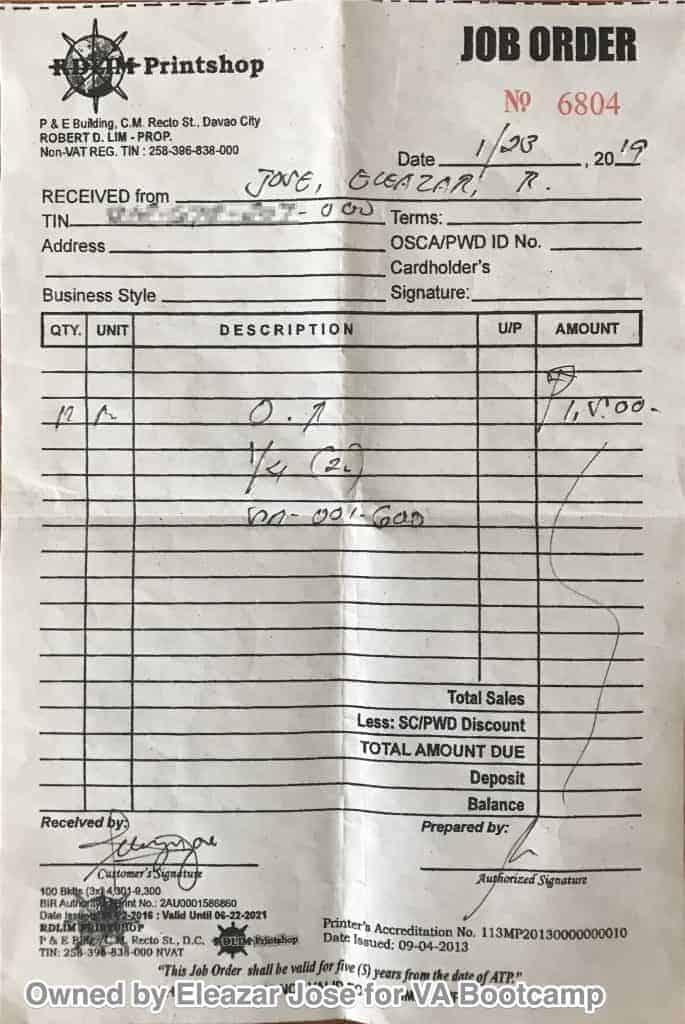 RDLIM Printshop
JOB ORDER
P & E Building, C.M. Recto St., Davao City
ROBERT D. LIM - PROP.
Non-VAT REG. TIN : 258-396-838-000
Nº 6804
Date 1/23, 2019
RECEIVED from JOSE, ELEAZAR, R.
TIN - 000 Terms:
Address OSCA/PWD ID No.
Cardholder's
Business Style Signature:
QTY. UNIT DESCRIPTION U/P AMOUNT
O.
1/4 (2)
001-600
Total Sales
Less: SC/PWD Discount
TOTAL AMOUNT DUE
Deposit
Balance
Received by:
Prepared by:
Customer's Signature
Authorized Signature
100 Bklts (3x) 4,301-9,300
BIR Authority Print No.: 2AU0001586860
Date Issued -2016 : Valid Until 06-22-2021
RDLIM PRINTSHOP
P & E Bldg. C.M. Recto St., D.C.
TIN: 258-396-838-000 NVAT
RDLIM Printshop
Printer's Accreditation No. 113MP20130000000010
Date Issued: 09-04-2013
"This Job Order shall be valid for five (5) years from the date of ATP."
Owned by Eleazar Jose for VA Bootcamp